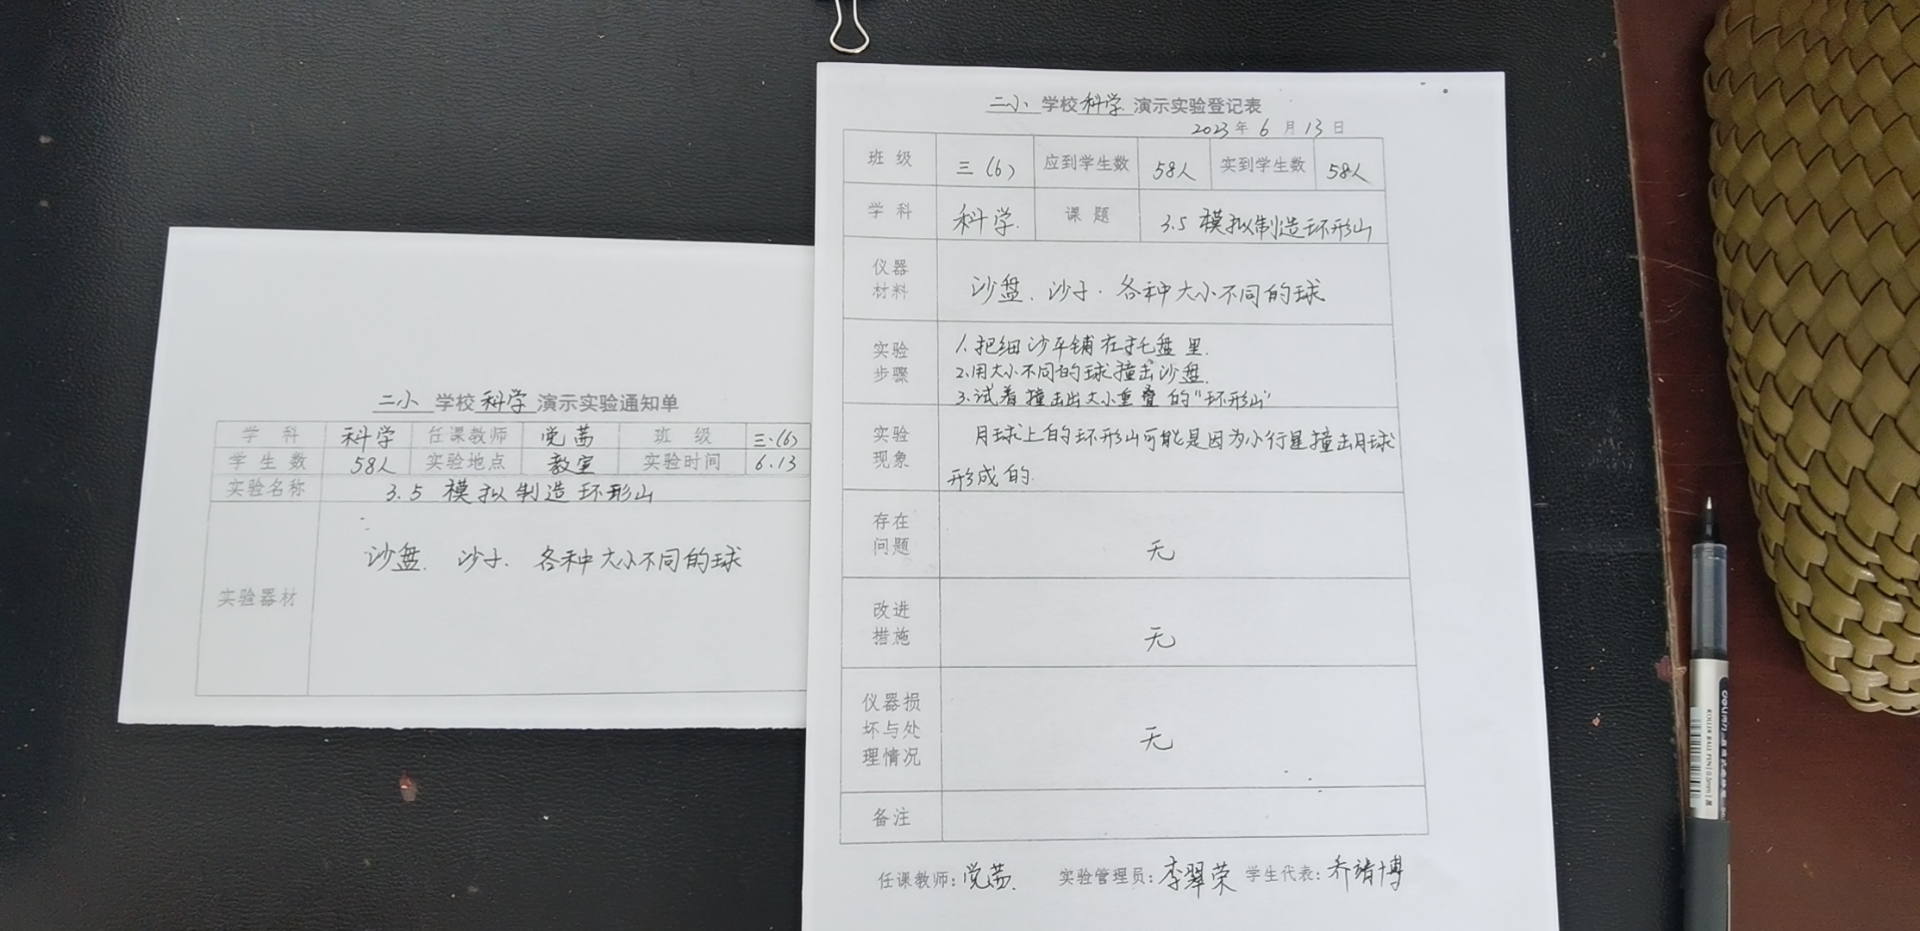 二小 学校 科学 演示实验通知单
学科 科学 任课教师 党茜 班级 三.(6)
学生数 58人 实验地点 教室 实验时间 6.13
实验名称 3.5 模拟制造环形山
实验器材 沙盘、沙子、各种大小不同的球
二小 学校 科学 演示实验登记表
2023年6月13日
班级 三(6) 应到学生数 58人 实到学生数 58人
学科 科学. 课题 3.5 模拟制造环形山
仪器
材料
沙盘、沙子、各种大小不同的球
实验
步骤
1.把细沙平铺在托盘里.
2.用大小不同的球撞击沙盘.
3.试着撞击出大小重叠的“环形山”
实验
现象
月球上的环形山可能是因为小行星撞击月球
形成的.
存在
问题
无
改进
措施
无
仪器损
坏与处
理情况
无
备注
任课教师:党茜. 实验管理员:李翠荣 学生代表:乔靖博
deli
ROLLER BALL PEN | 0.5mm | 黑